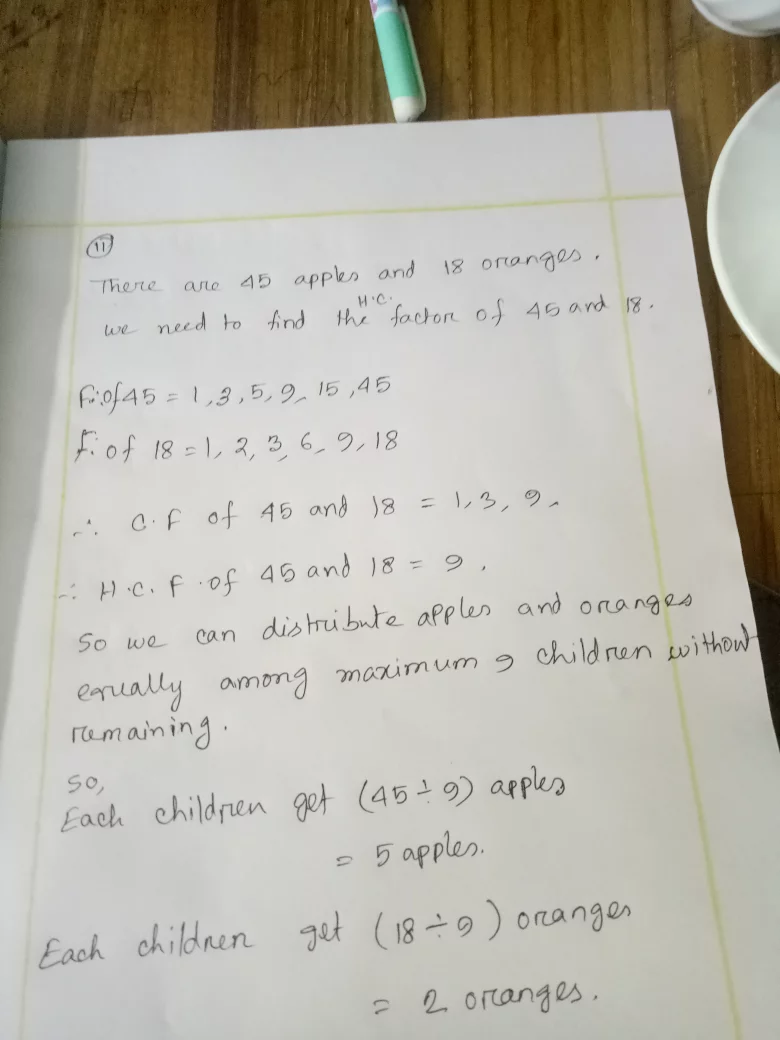 11
There are 45 apples and 18 oranges.
H.C.
we need to find the factor of 45 and 18.
F. of 45 = 1, 3, 5, 9, 15, 45
F. of 18 = 1, 2, 3, 6, 9, 18
∴ C.F of 45 and 18 = 1, 3, 9.
∴ H.C.F. of 45 and 18 = 9.
So we can distribute apples and oranges
equally among maximum 9 children without
remaining.
So,
Each children get (45 ÷ 9) apples
= 5 apples.
Each children get (18 ÷ 9) oranges
= 2 oranges.